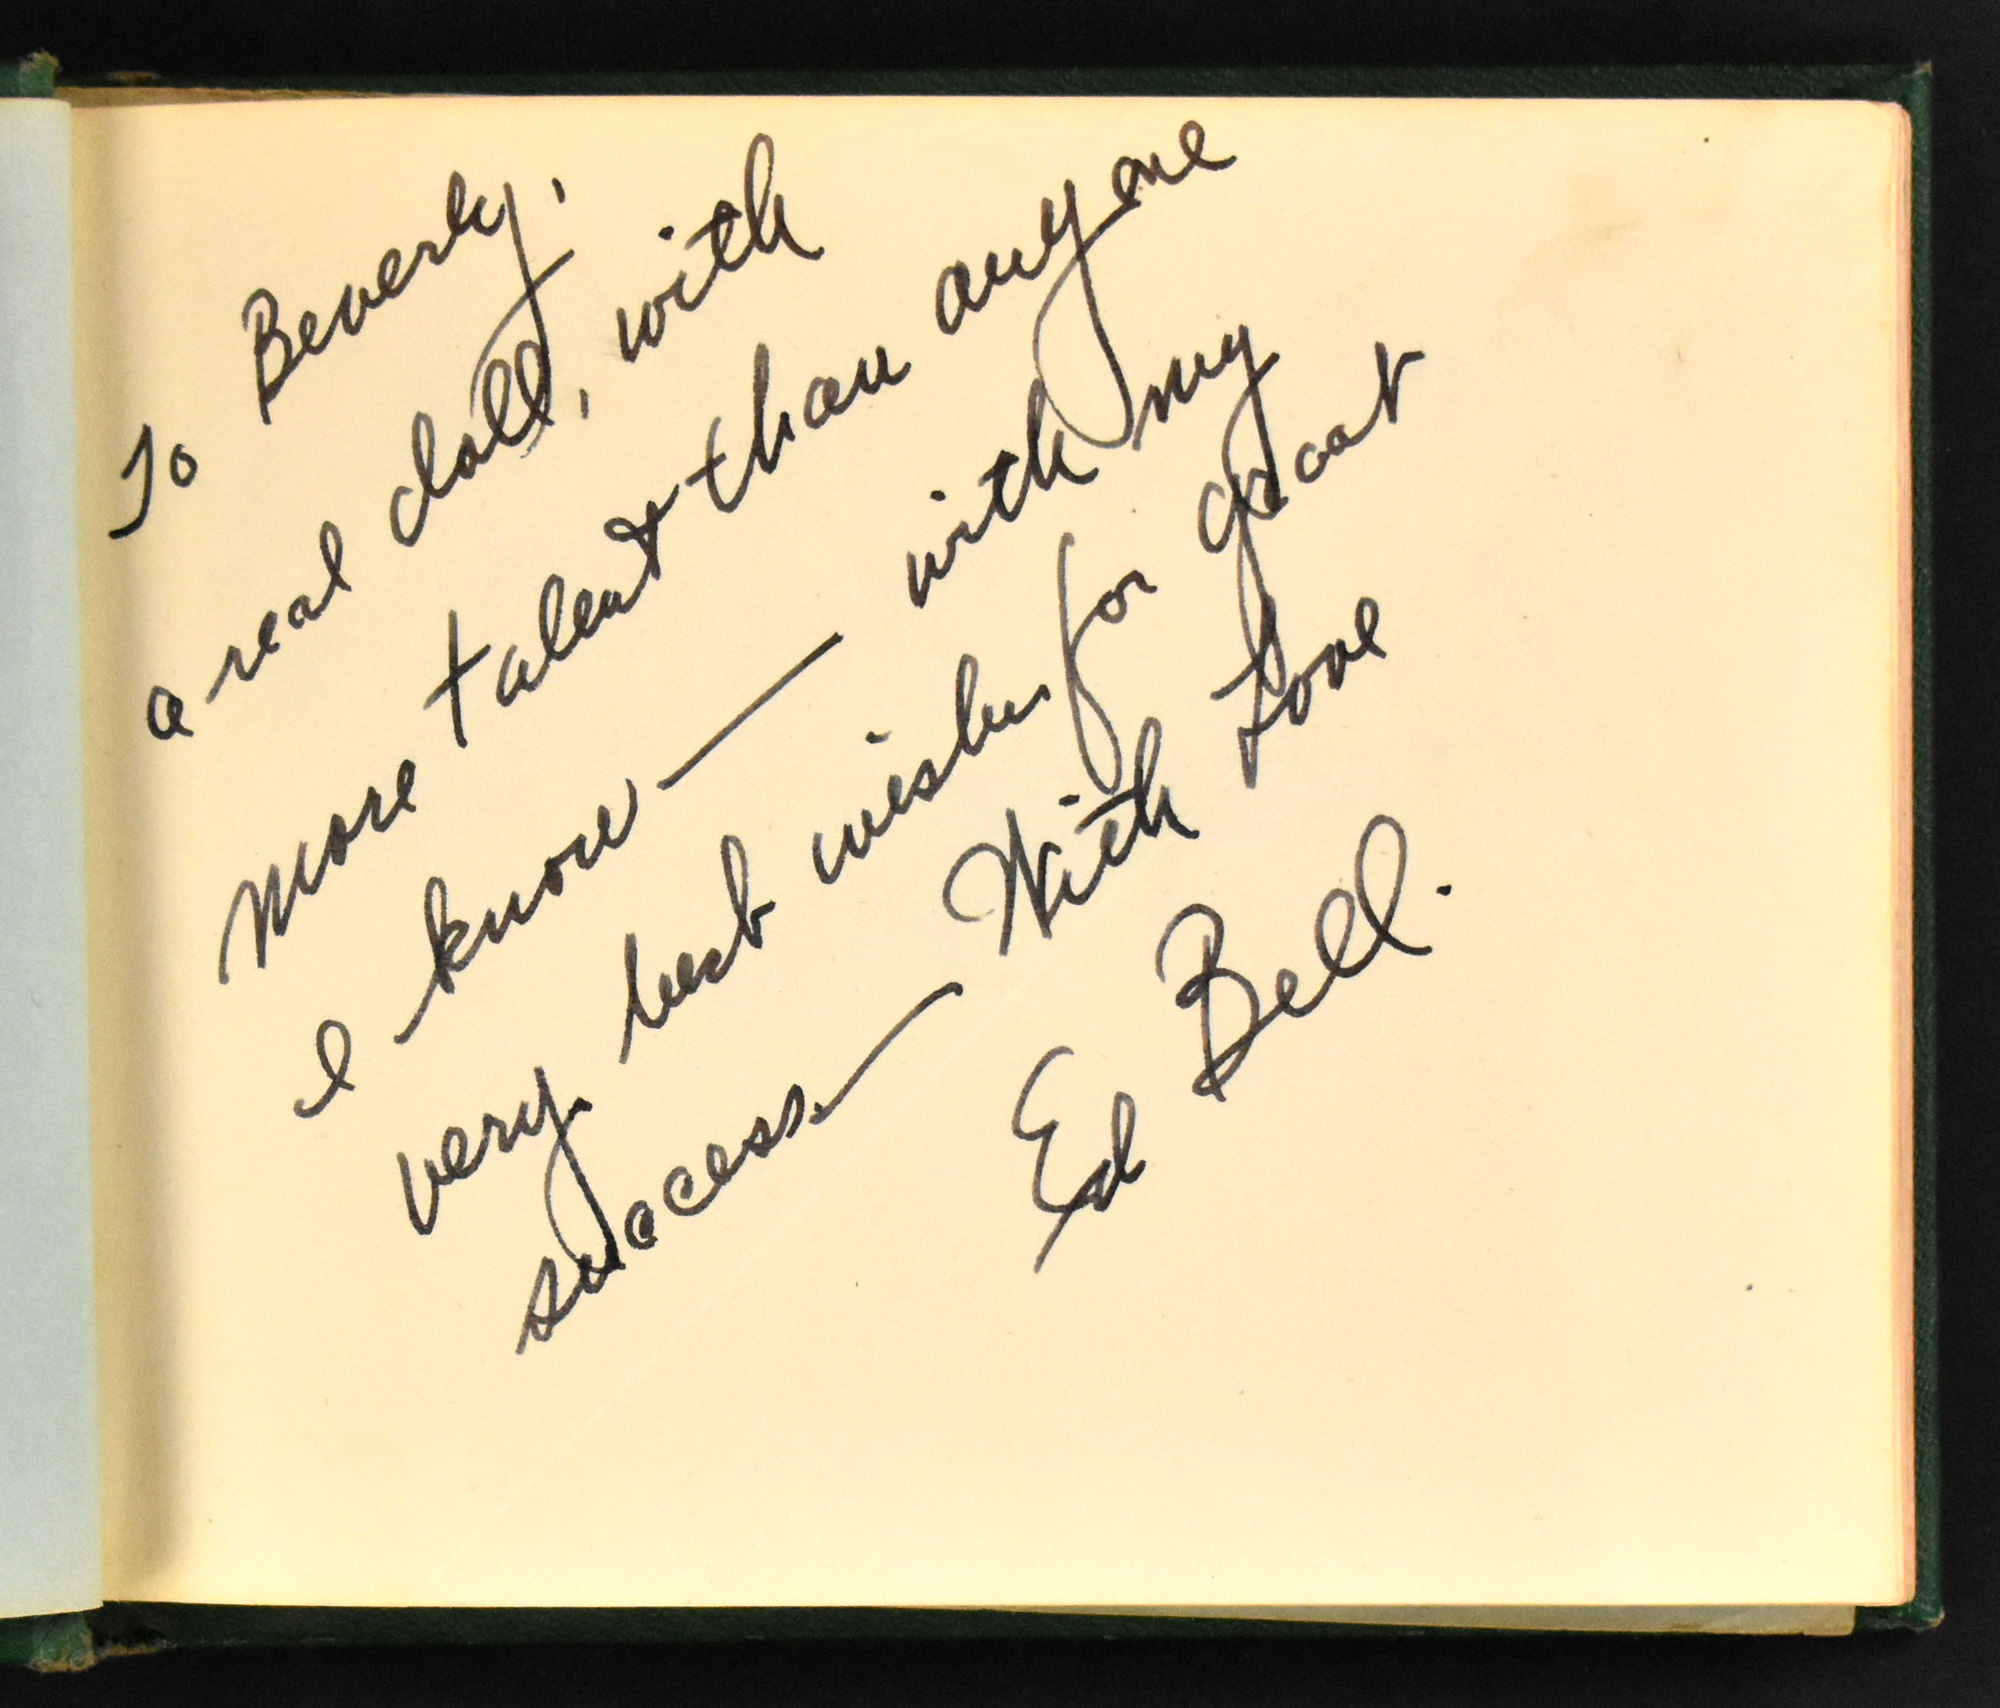 To Beverly,
a real doll, with
more talent than anyone
I know — with my
very best wishes for great
success — With Love
Ed Bell.